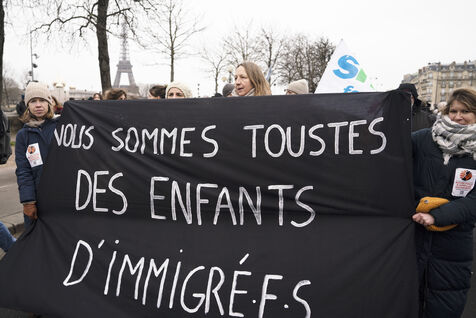 NOUS SOMMES TOUSTES
DES ENFANTS
D'IMMIGRÉ·F·S